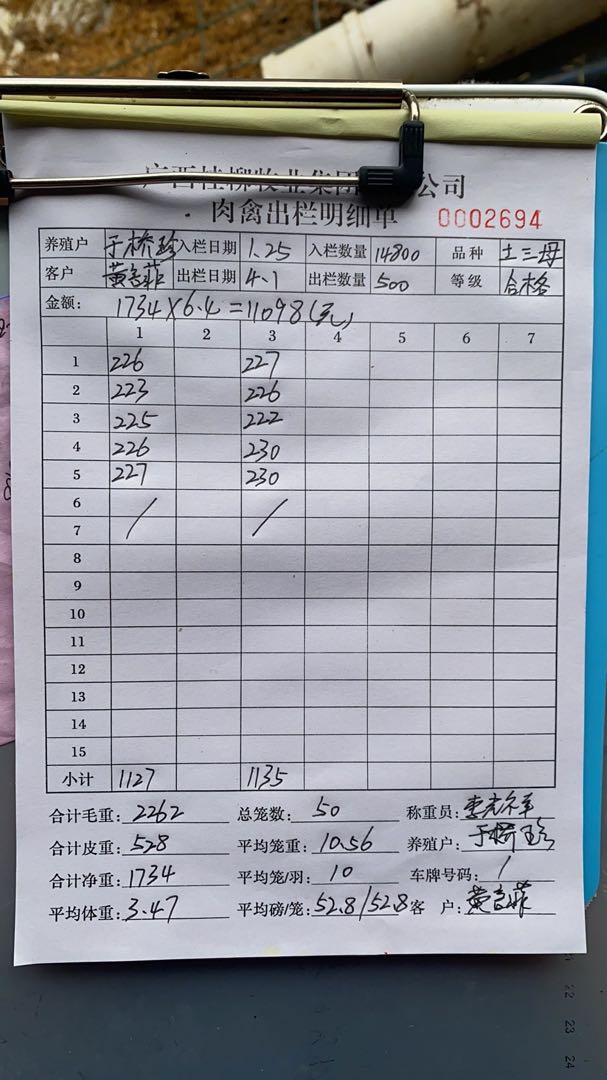 广西桂柳牧业集团 公司
肉禽出栏明细单 0002694
养殖户 于桥珍 入栏日期 1.25 入栏数量 14800 品种 土三母
客户 黄 菲 出栏日期 4.1 出栏数量 500 等级 合格
金额: 1734×6.4=11098(元)
1 2 3 4 5 6 7
1 226 227
2 223 226
3 225 222
4 226 230
5 227 230
6
7 / /
8
9
10
11
12
13
14
15
小计 1127 1135
合计毛重: 2262 总笼数: 50 称重员:
合计皮重: 528 平均笼重: 10.56 养殖户: 于桥珍
合计净重: 1734 平均笼/羽: 10 车牌号码: /
平均体重: 3.47 平均磅/笼: 52.8/52.8 客 户: 黄 菲
22
23
24